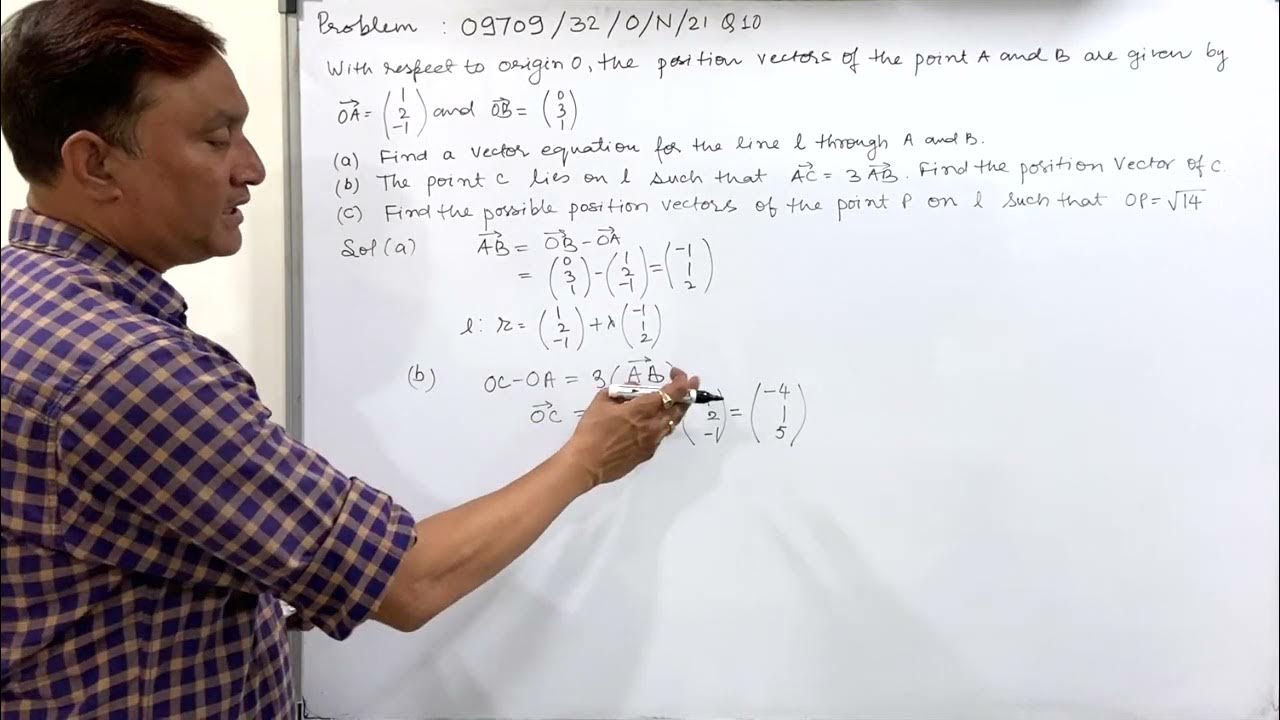 Problem : 09709/32/O/N/21 Q10
With respect to origin O, the position vectors of the point A and B are given by
→OA = (1 2 -1) and →OB = (0 3 1)
(a) Find a vector equation for the line l through A and B.
(b) The point C lies on l such that →AC = 3→AB. Find the position vector of C.
(c) Find the possible position vectors of the point P on l such that OP = √14
Sol (a) →AB = →OB - →OA
= (0 3 1) - (1 2 -1) = (-1 1 2)
l: r = (1 2 -1) + λ(-1 1 2)
(b) OC - OA = 3(→AB)
→OC = 2 -1) = (-4 1 5)